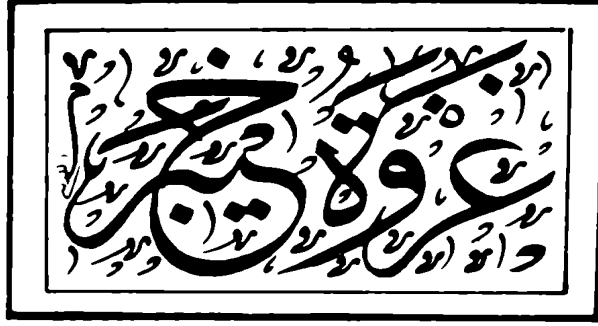 غزوة خيبر